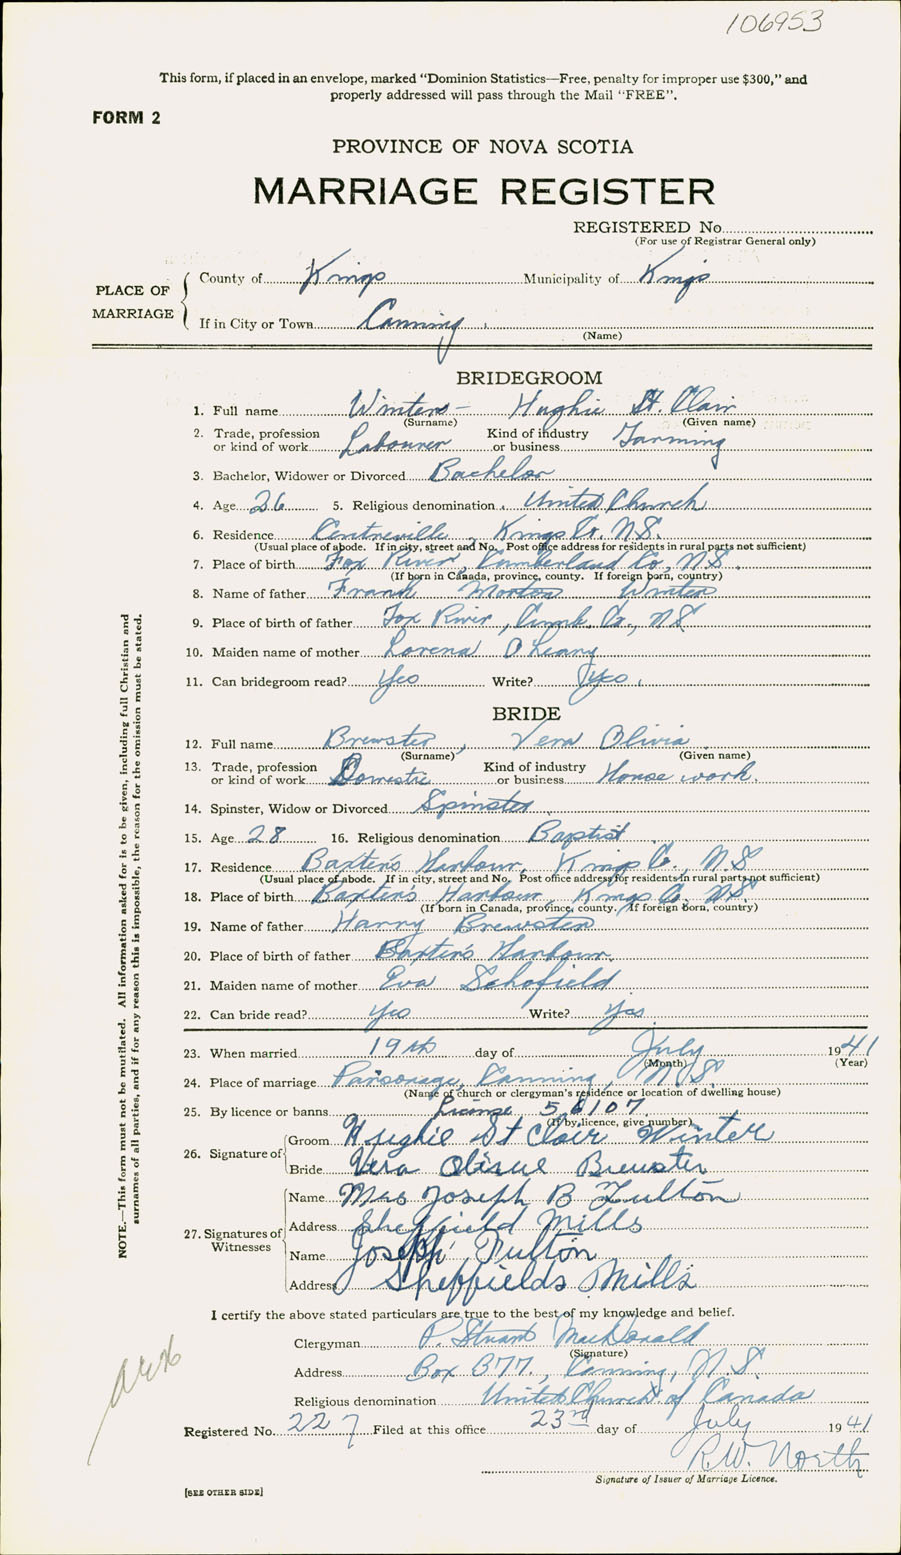 106953
This form, if placed in an envelope, marked "Dominion Statistics—Free, penalty for improper use $300," and
properly addressed will pass through the Mail "FREE".
FORM 2
PROVINCE OF NOVA SCOTIA
MARRIAGE REGISTER
REGISTERED No.
(For use of Registrar General only)
PLACE OF MARRIAGE
County of Kings Municipality of Kings
If in City or Town Canning
(Name)
BRIDEGROOM
1. Full name Winters - Hughie St. Clair
(Surname) (Given name)
2. Trade, profession or kind of work Labourer Kind of industry or business Farming
3. Bachelor, Widower or Divorced Bachelor
4. Age 26 5. Religious denomination United Church
6. Residence Centreville, Kings Co. N.S.
(Usual place of abode. If in city, street and No. Post office address for residents in rural parts not sufficient)
7. Place of birth Fox River, Cumberland Co, N.S.
(If born in Canada, province, county. If foreign born, country)
8. Name of father Frank Morton Winter
9. Place of birth of father Fox River, Cumb. Co., N.S
10. Maiden name of mother Lorena O'Leary
11. Can bridegroom read? Yes Write? Yes.
BRIDE
12. Full name Brewster, Vera Olivia
(Surname) (Given name)
13. Trade, profession or kind of work Domestic Kind of industry or business House work.
14. Spinster, Widow or Divorced Spinster
15. Age 28 16. Religious denomination Baptist
17. Residence Baxter's Harbour, Kings Co., N.S
(Usual place of abode. If in city, street and No. Post office address for residents in rural parts not sufficient)
18. Place of birth Baxter's Harbour, Kings Co. N.S.
(If born in Canada, province, county. If foreign born, country)
19. Name of father Harry Brewster
20. Place of birth of father Baxter's Harbour.
21. Maiden name of mother Eva Schofield
22. Can bride read? Yes Write? Yes
23. When married 19th day of July 1941
(Month) (Year)
24. Place of marriage Parsonage, Canning, N.S.
(Name of church or clergyman's residence or location of dwelling house)
25. By licence or banns License
(If by licence, give number)
26. Signature of Groom Hughie St Clair Winter
Bride Vera Brewster
27. Signatures of Witnesses
Name Mrs Joseph B Fulton
Address Sheffield Mills
Name Joseph Fulton
Address Sheffields Mills
I certify the above stated particulars are true to the best of my knowledge and belief.
Clergyman P. Stuart MacDonald
(Signature)
Address Box B77, Canning, N.S.
Religious denomination United Church of Canada
Registered No. 227 Filed at this office 23rd day of July 1941
R.W. North
Signature of Issuer of Marriage Licence.
[SEE OTHER SIDE]
NOTE.—This form must not be mutilated. All information asked for is to be given, including full Christian and
surnames of all parties, and if for any reason this is impossible, the reason for the omission must be stated.